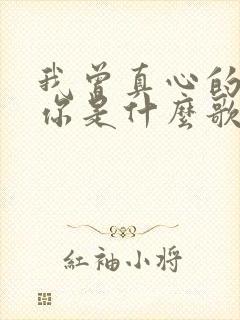 我曾真心的
你是什麼歌
紅袖小将